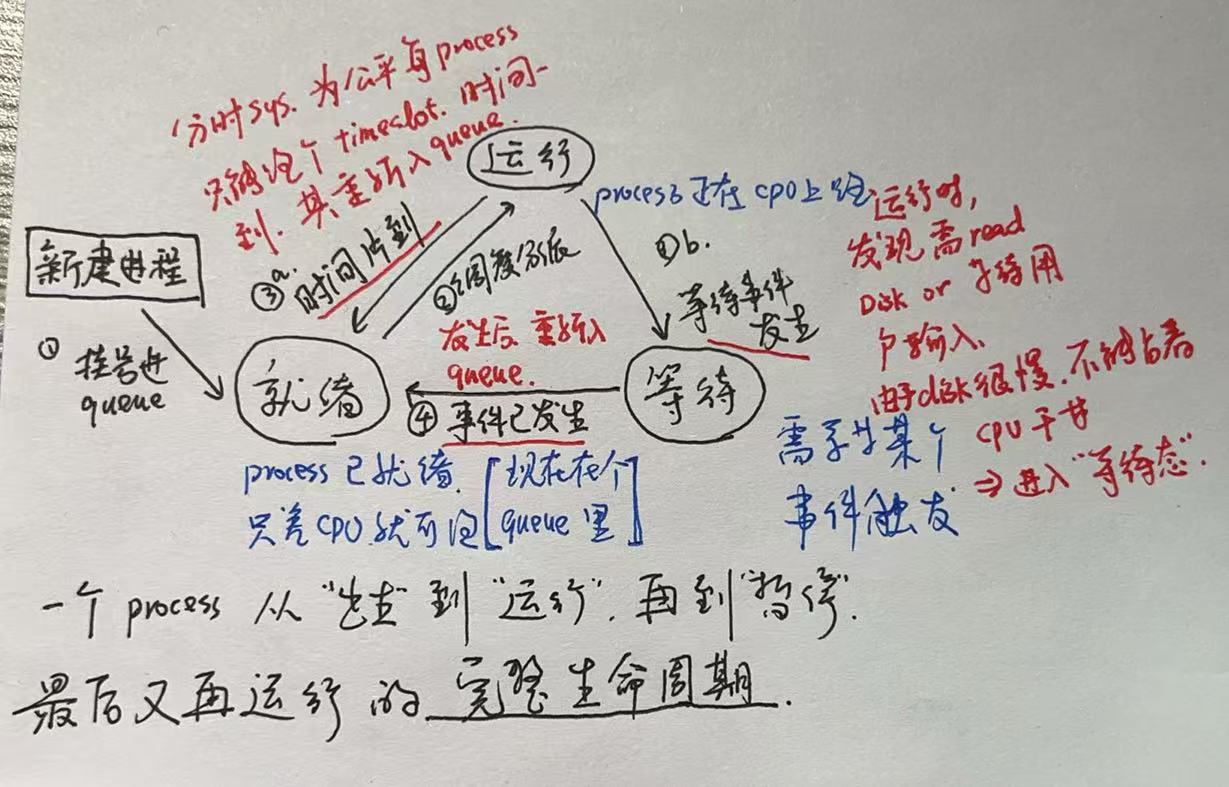 分时sys. 为公平每process
只能跑个timeslot. 时间一
到. 其重新入queue.
运行
process正在CPU上跑
新建进程
① 挂号进
queue
③a. 时间片到
②调度分派
b.
等待事件
发生
运行时,
发现需read
Disk or 等待用
户输入.
由于disk很慢. 不能占着
CPU干甘
⇒ 进入“等待态”.
发生后 重新入
queue.
就绪
④ 事件已发生
等待
process已就绪.
只差CPU就可跑
[现在在个
queue里]
需等某个
事件触发
一个process从“出生”到“运行”. 再到“暂停”.
最后又再运行的 完整生命周期.